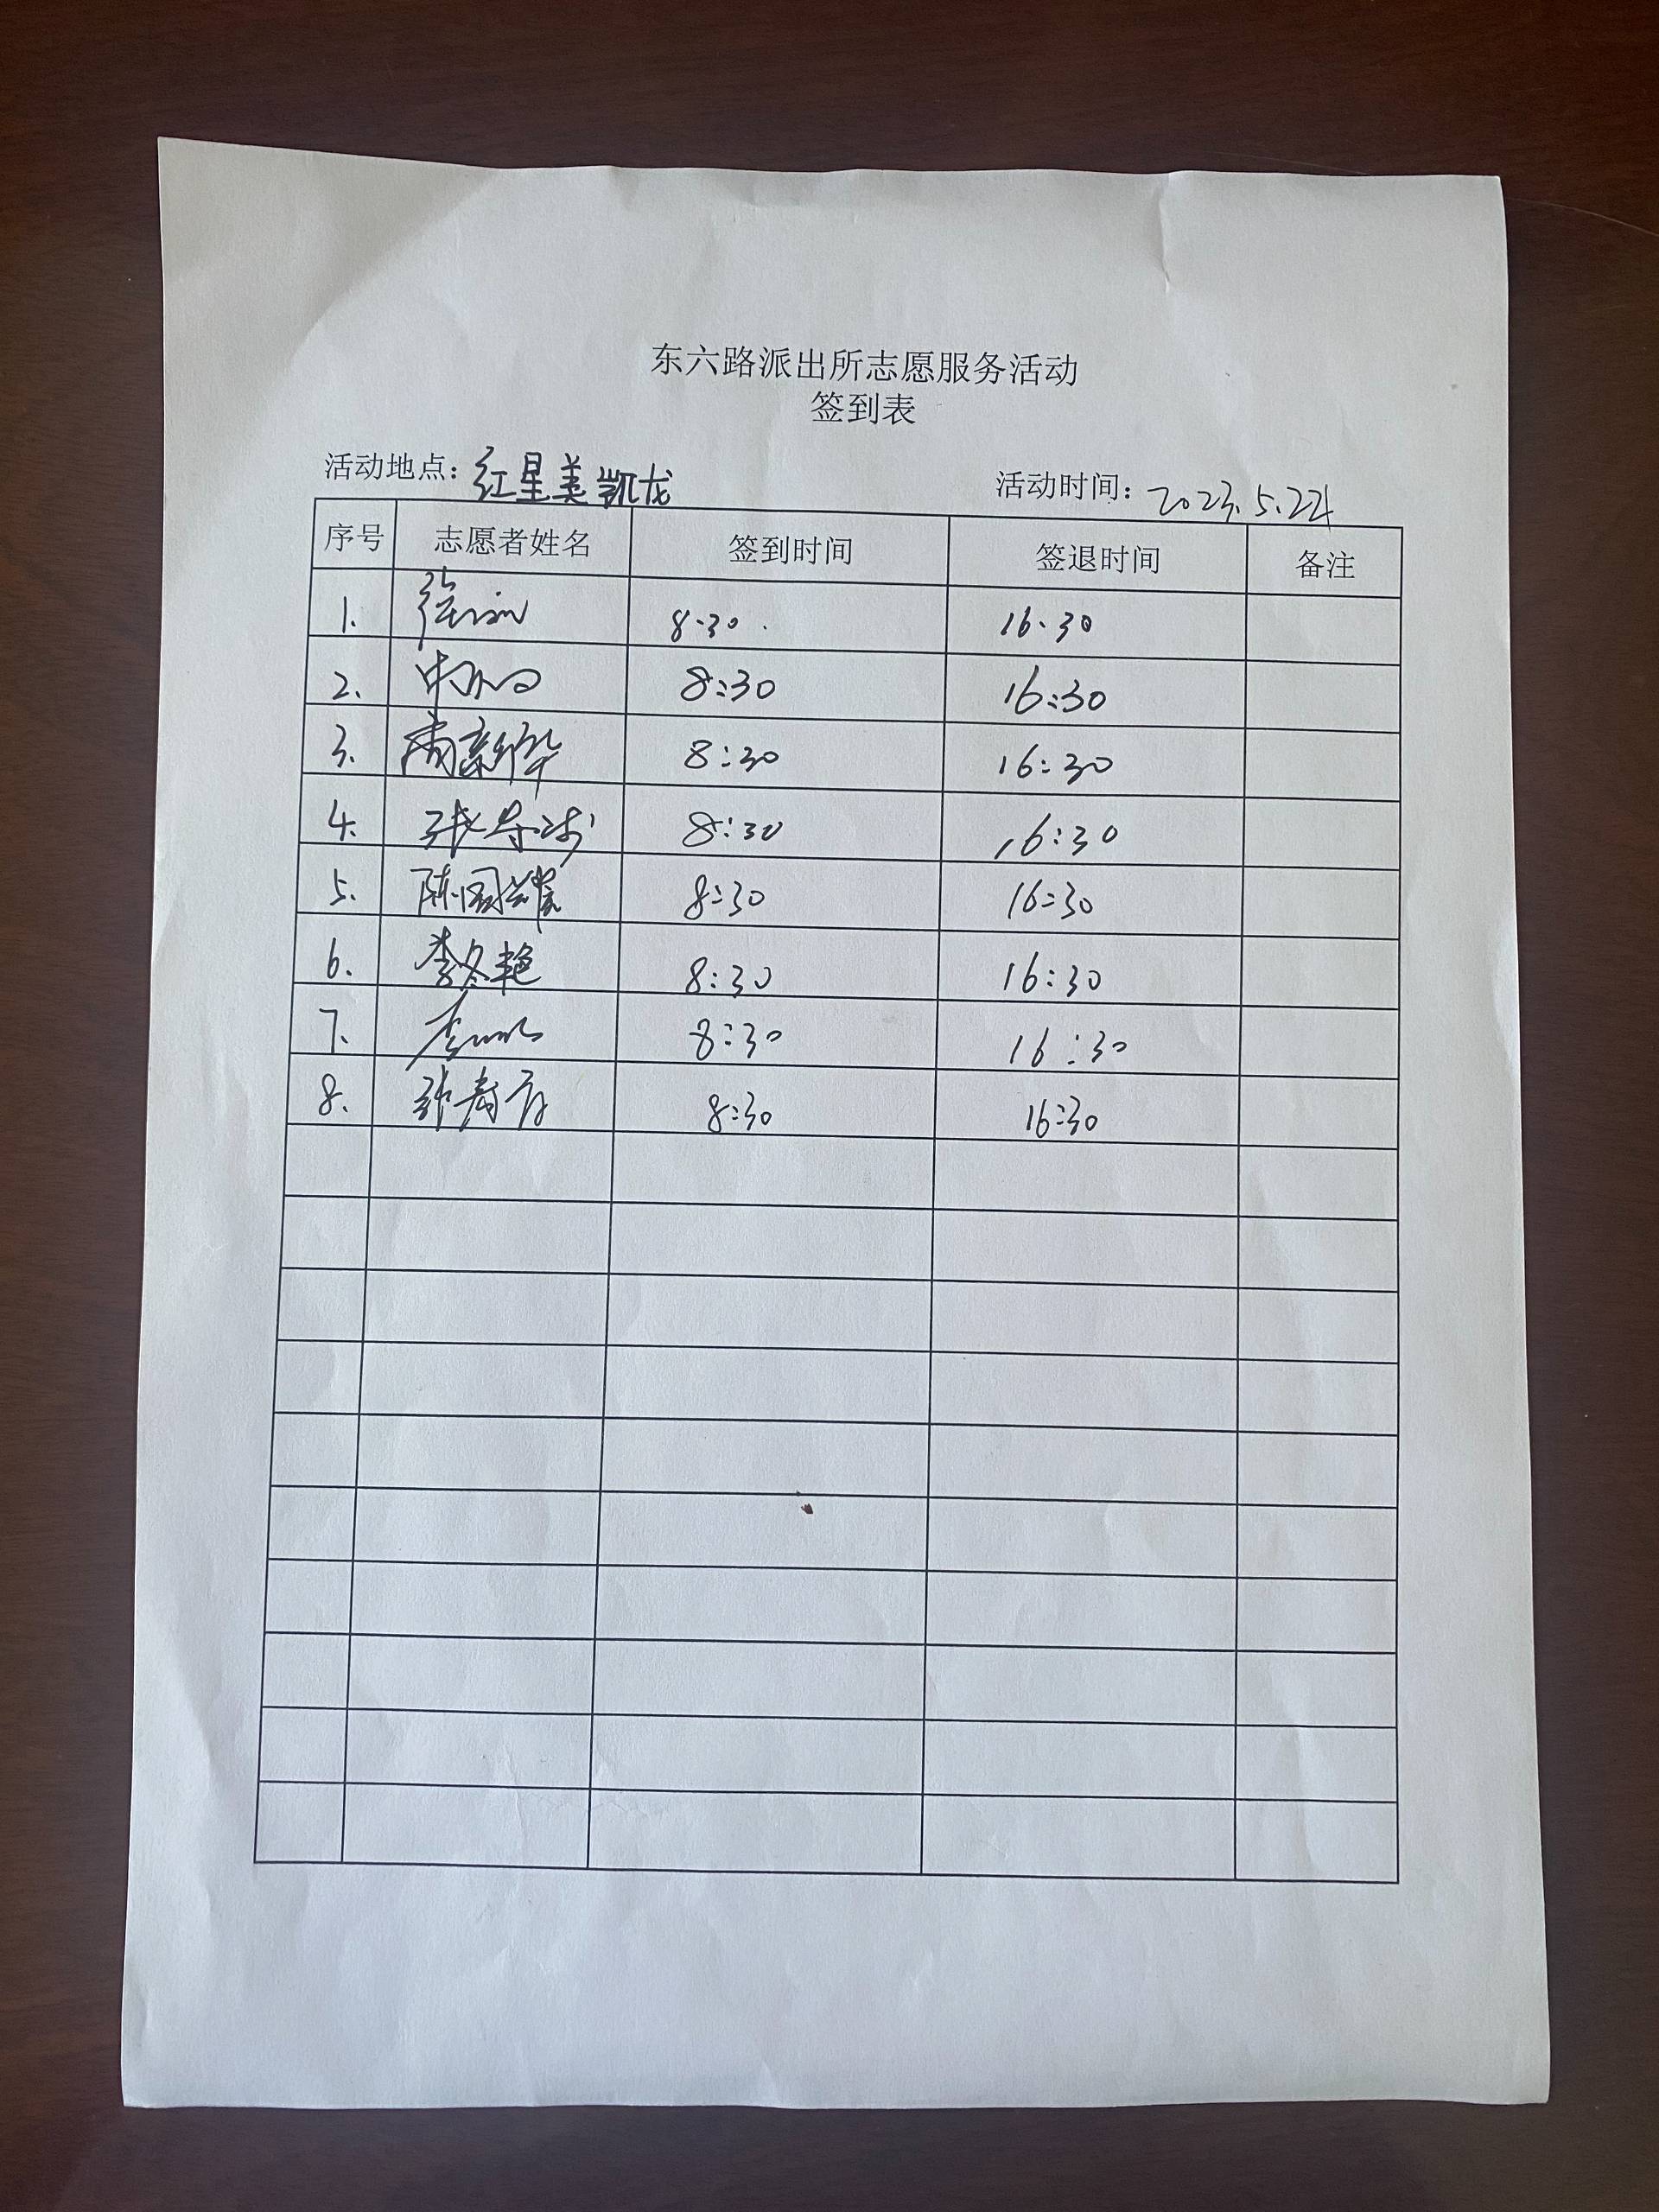 东六路派出所志愿服务活动
签到表
活动地点：红星美凯龙 活动时间：2023.5.22
序号 志愿者姓名 签到时间 签退时间 备注
1. 8:30 16:30
2. 8:30 16:30
3. 新华 8:30 16:30
4. 张 8:30 16:30
5. 陈国 8:30 16:30
6. 李冬艳 8:30 16:30
7. 李 8:30 16:30
8. 张 8:30 16:30